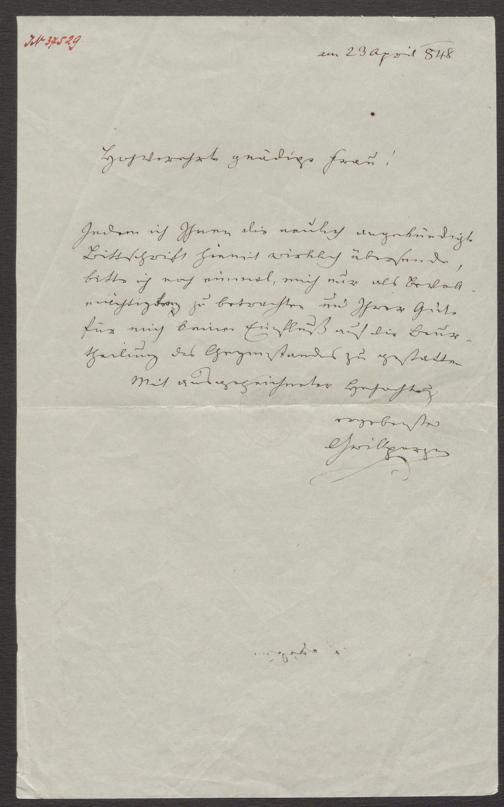 IN 37529
am 23 April 848
Hochverehrte gnädige Frau!
Indem ich Ihnen die neulich angekündigte
Bittschrift hiemit wirklich übersende,
bitte ich noch einmal, mich nur als Bevoll-
mächtigten zu betrachten und Ihrer Güte
für mich keinen Einfluß auf die Beur-
theilung des Gegenstandes zu gestatten
Mit ausgezeichneter Hochachtung
ergebenster
Grillparzer